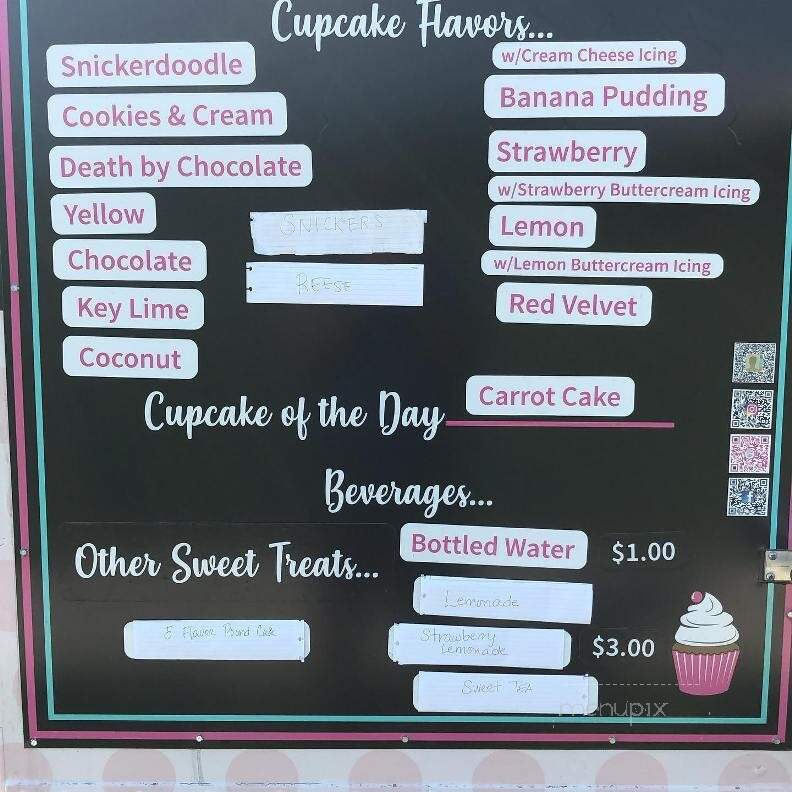 Cupcake Flavors...
Snickerdoodle
Cookies & Cream
Death by Chocolate
Yellow
Chocolate
Key Lime
Coconut
SNICKERS
REESE
w/Cream Cheese Icing
Banana Pudding
Strawberry
w/Strawberry Buttercream Icing
Lemon
w/Lemon Buttercream Icing
Red Velvet
Cupcake of the Day
Carrot Cake
Beverages...
Bottled Water $1.00
Lemonade
Strawberry
Lemonade
$3.00
Sweet TEA
Other Sweet Treats...
5 Flavor Pound Cake
menupix